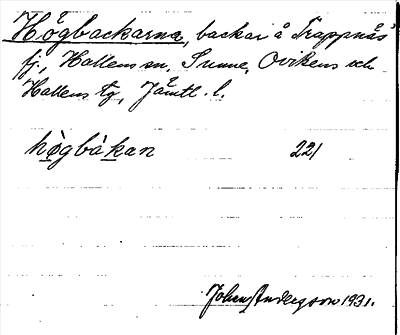 Högbackarna, backar å Trappnäs
fj., Hallens sn, Sunne, Ovikens och
Hallens tg, Jämtl. l.
hògbàkan 221
Johan Andersson 1931.